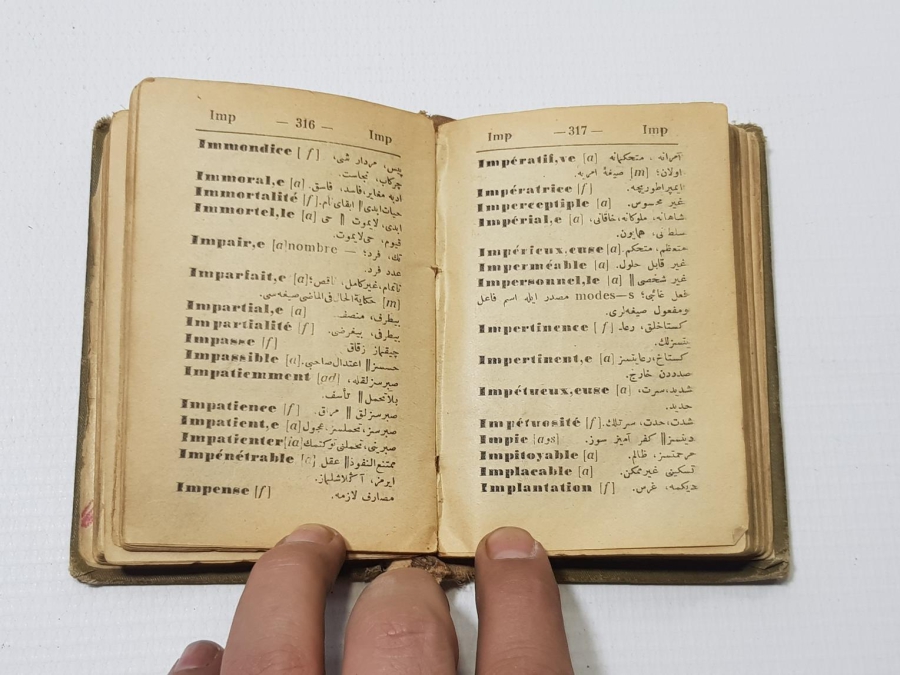 Imp — 316 — Imp
Immondice [f] پیس، مردار شی،
چرکاب، نجاست.
Immoral,e [a] ادبه مغایر، فاسد، فاسق.
Immortalité [f] حیات ابدی‖ ابقای نام.
Immortel,le [a] ابدی، لایموت ‖ حی
قیوم، حی لایموت.
Impair,e [a] nombre — تك، فرد؛
عدد فرد.
Imparfait,e [a] ناتمام، غیرکامل، ناقص؛
[m] حکایة الحال فی الماضی صیغه سی.
Impartial,e [a] بیطرف، منصف.
Impartialité [f] بیطرفی، بیغرضی.
Impasse [f] چیقماز زقاق
Impassible [a] حسسز‖ اعتدال صاحبی.
Impatiemment [ad] صبرسزلقله،
بلاتحمل‖ تأسف.
Impatience [f] صبرسزلق ‖ مراق.
Impatient,e [a] صبرسز، تحملسز، عجول
Impatienter [a]
Impénétrable ممتنع النفوذ‖ عقل
ایرمز، آکلاشلماز.
Impense [f] مصارف لازمه.
Imp — 317 — Imp
Impératif,ve [a] آمرانه ، متحکمانه
اولان؛ [m] صیغهٔ امریه.
Impératrice [f] ایمپراطوریچه.
Imperceptiple [a] غیر محسوس.
Impérial,e [a] شاهانه، ملوکانه، خاقانی،
سلطانی، همایون.
Impérieux,euse [a] متعظم، متحکم.
Imperméable [a] غیر قابل حلول.
Impersonnel,le [a] غیر شخصی‖
فعل غائبی؛ modes—s مصدر ایله اسم فاعل
ومفعول صیغه لری.
Impertinence [f] کستاخلق،
Impertinent,e [a] کستاخ، رعایتسز
صددن خارج.
Impétueux,euse [a] شدید،
حدید.
Impétuosité [f] شدت، حدت، سرتلك.
Impie [a,s] دینسز‖ کفر آمیز سوز.
Impitoyable [a] مرحمتسز، ظالم.
Implacable [a] تسکینی غیرممکن.
Implantation [f] دیکمه، غرس.